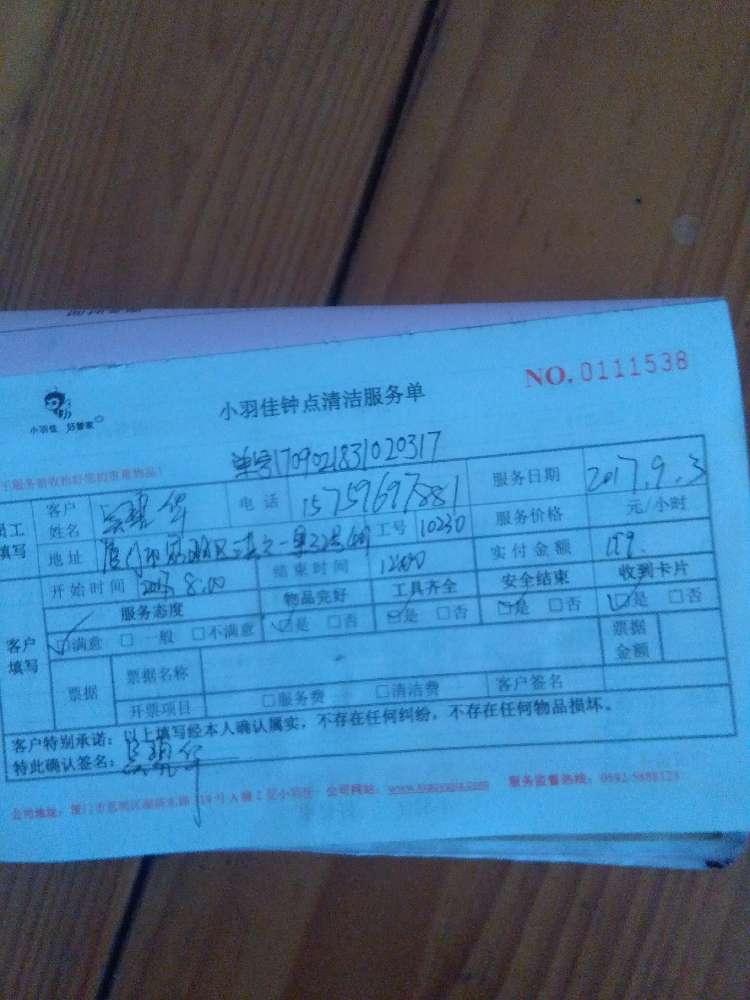 NO.0111538
小羽佳 好管家
小羽佳钟点清洁服务单
单号1709021831020317
员工填写
客户姓名 电话 15759697881 服务日期 2017.9.3
地址 工号 10230 服务价格 元/小时
开始时间 8:00 结束时间 实付金额 159
客户填写
服务态度 物品完好 工具齐全 安全结束 收到卡片
满意 一般 不满意 是 否 是 否 是 否 是 否
票据 票据名称 票据金额
开票项目 服务费 清洁费 客户签名
客户特别承诺：以上填写经本人确认属实，不存在任何纠纷，不存在任何物品损坏。
特此确认签名：
公司地址：厦门市思明区 公司网站： 服务监督热线：